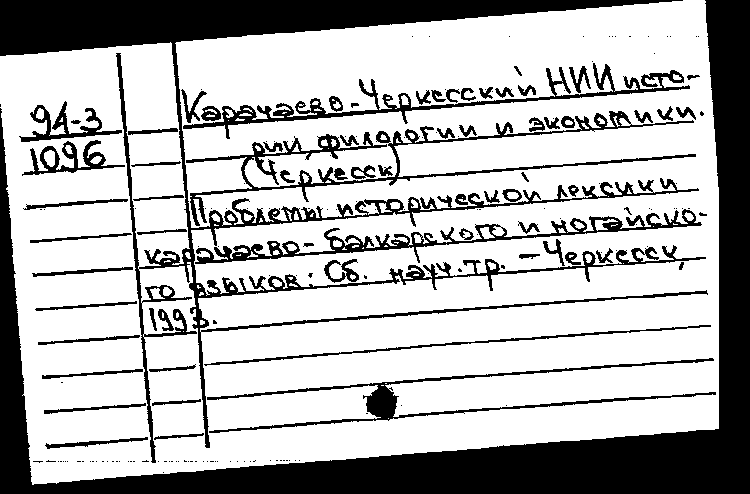 94-3
1096
Карачаево-Черкесский НИИ исто-
рии, филологии и экономики.
(Черкесск)
Проблемы исторической лексики
карачаево-балкарского и ногайско-
го языков: Сб. науч. тр. – Черкесск,
1993.